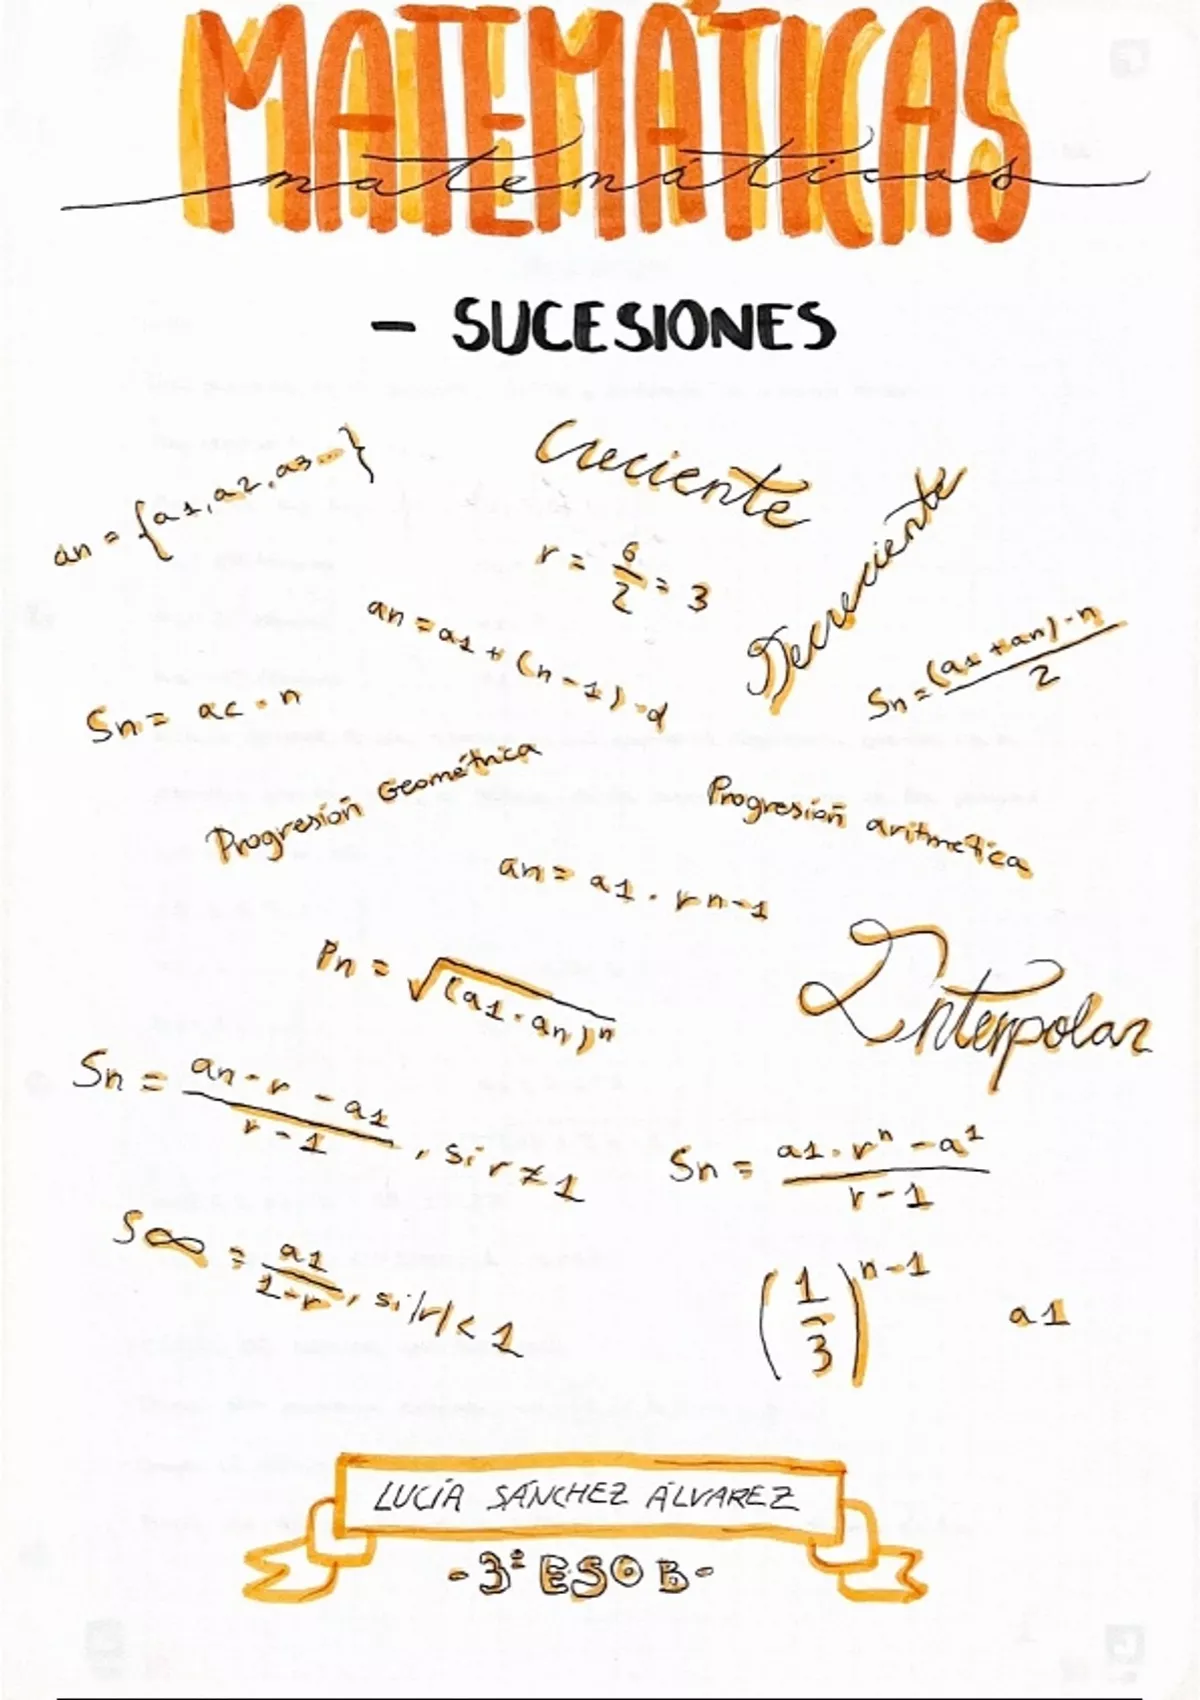 MATEMÁTICAS
matemáticas
- SUCESIONES
an = {a1, a2, a3...}
Creciente
Decreciente
r = 6/2 = 3
an = a1 + (n-1)·d
Sn = (a1 + an)·n / 2
Sn = ac · n
Progresión Geométrica
Progresión aritmética
an = a1 · r n-1
Pn = √(a1·an)ⁿ
Interpolar
Sn = an·r - a1 / r-1, si r ≠ 1
Sn = a1·rⁿ - a¹ / r-1
S∞ = a1 / 1-r, si |r| < 1
(1/3)ⁿ⁻¹
a1
LUCÍA SÁNCHEZ ÁLVAREZ
-3º ESO B-